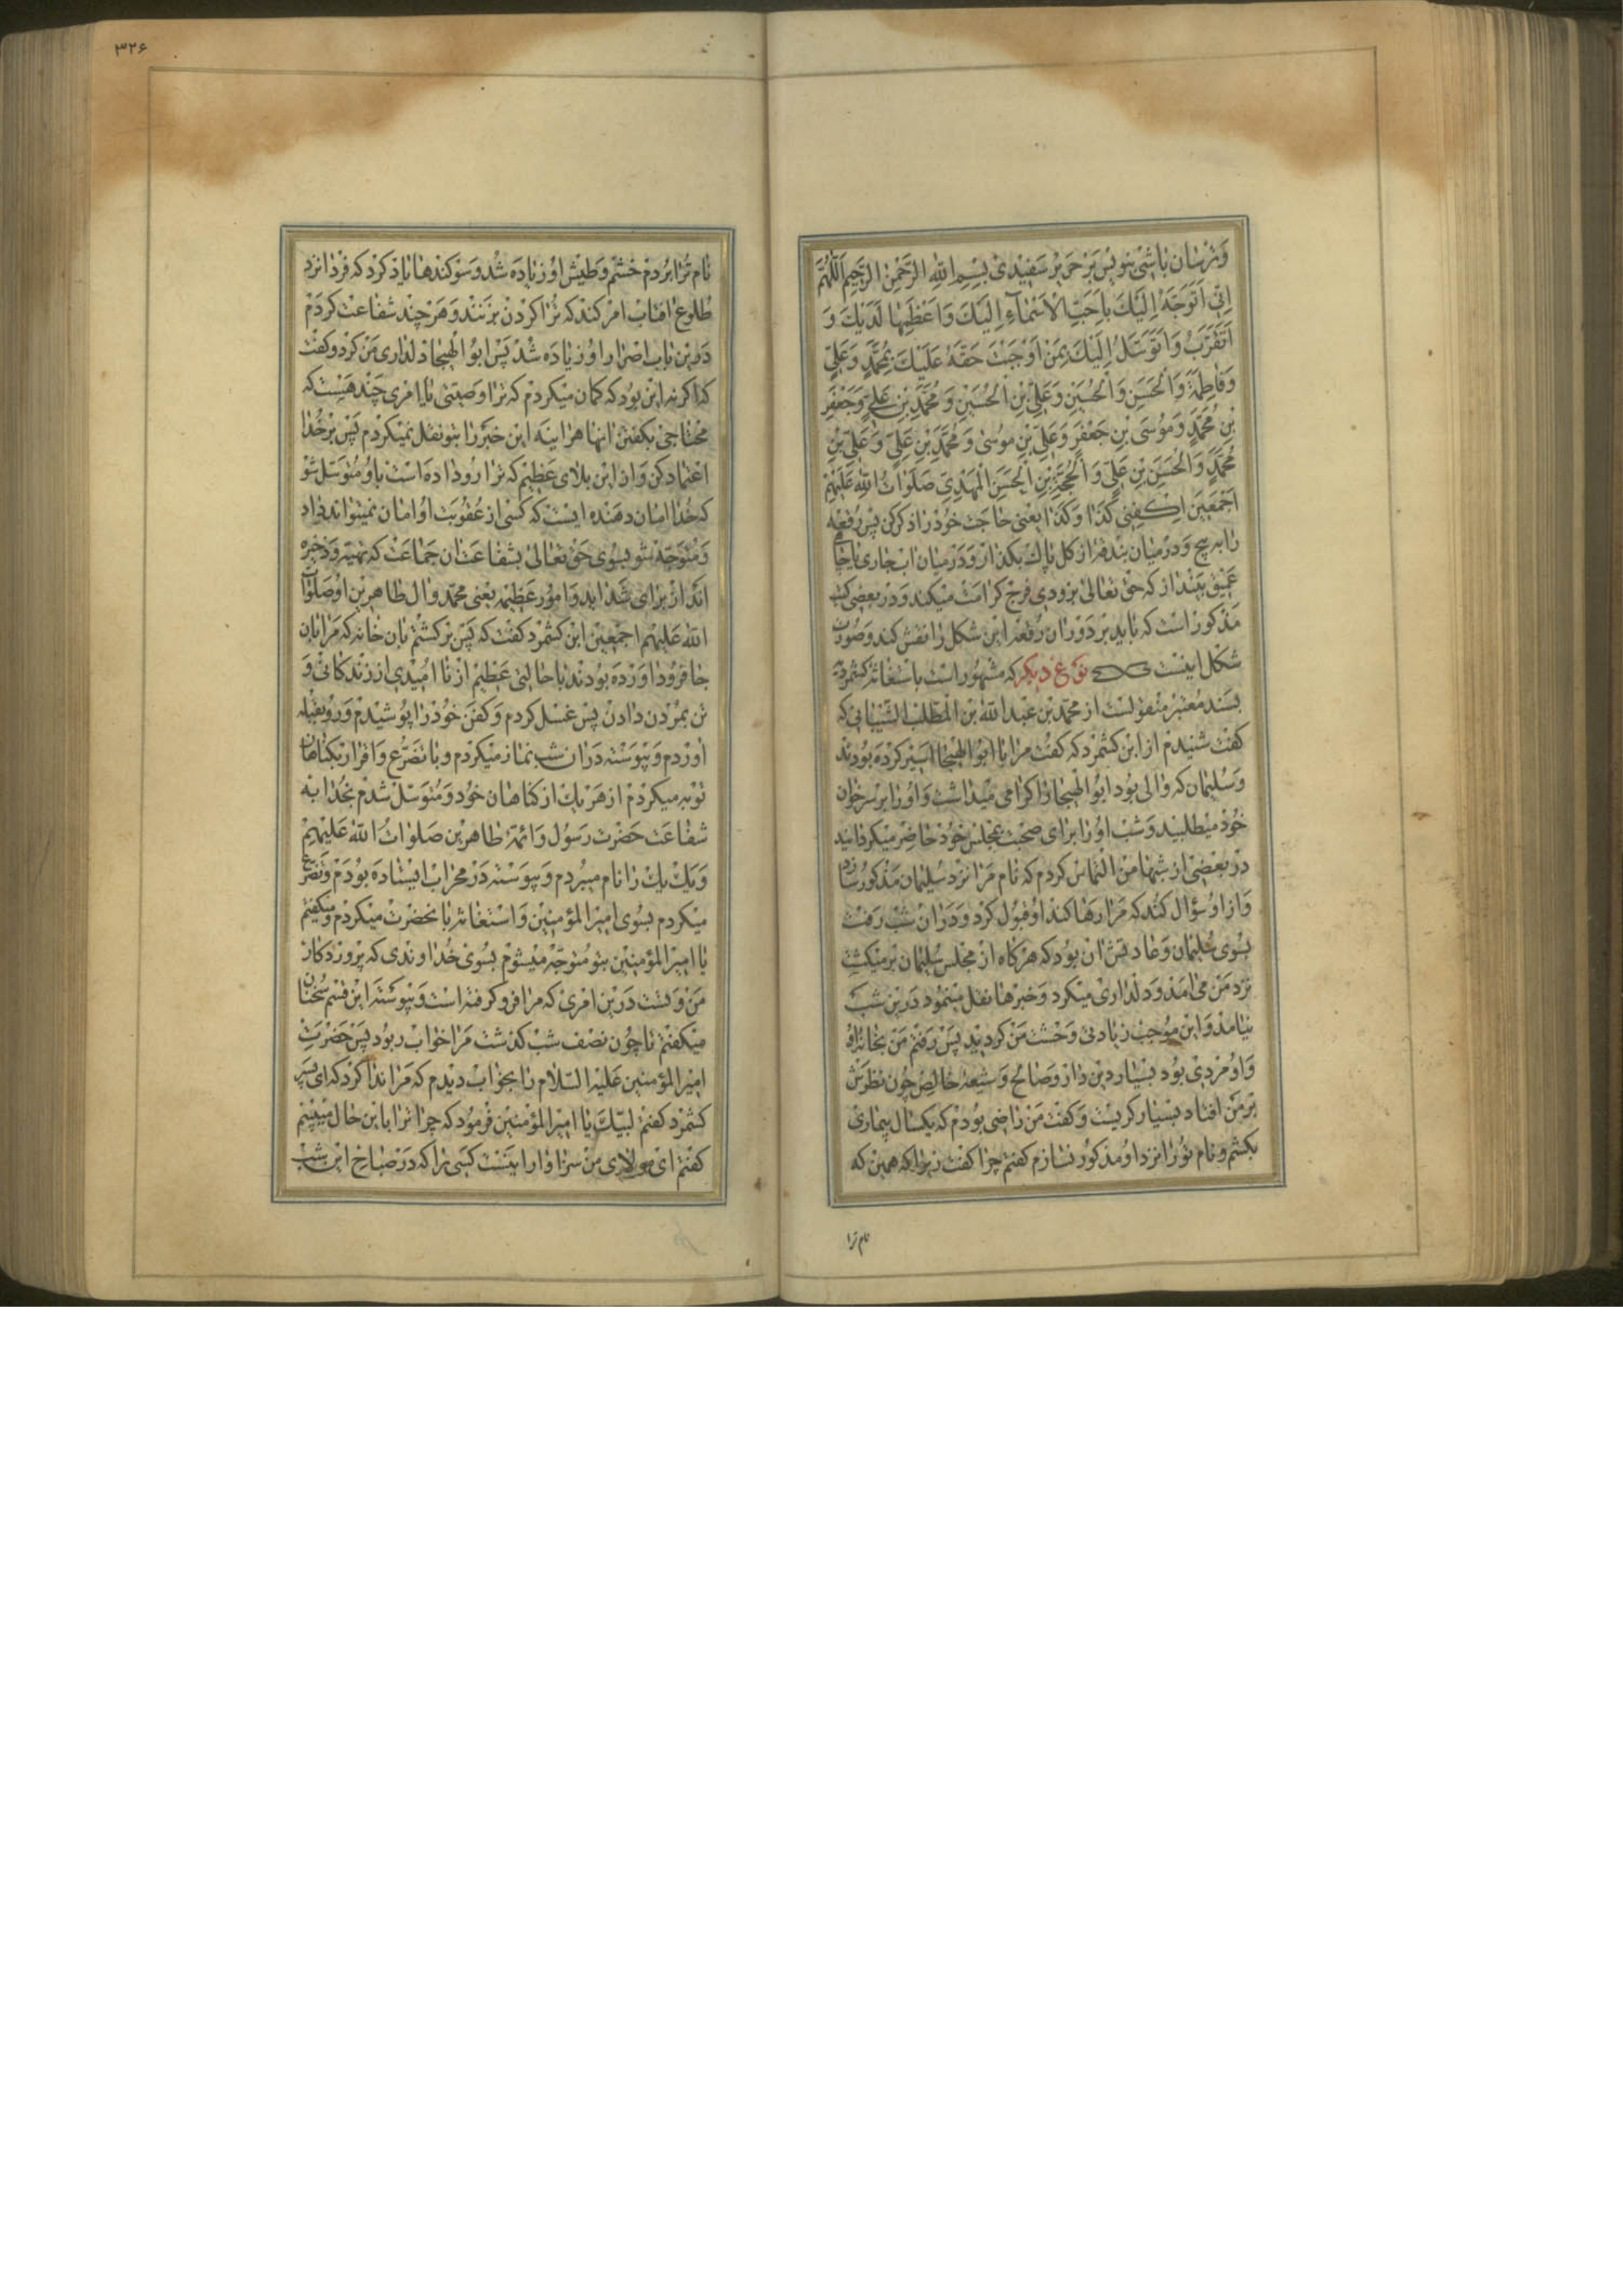 و ترسان باشی بنویس بر حریر سفیدی بسم الله الرحمن الرحیم اللهم
انی اتوجه الیك باحب الاسماء الیك و اعظمها لدیك و
اتقرب و اتوسل الیك بمن اوجبت حقه علیك بمحمد و علی
و فاطمة و الحسن و الحسین و علی بن الحسین و محمد بن علی و جعفر
بن محمد و موسی بن جعفر و علی بن موسی و محمد بن علی و علی بن
محمد و الحسن بن علی و الحجة بن الحسن المهدی صلوات الله علیهم
اجمعین اكفنی كذا و كذا یعنی حاجت خود را ذكر كن پس رقعه
را بپیچ و در میان بندقه از كل پاك بكذار و در میان اب جاری یا چاه
عمیق بینداز كه حق تعالی بزودی فرج كرامت میكند و در بعضی كتب
مذكور است كه باید بر دوران رقعه این شكل را نقش كند و صورت
شكل اینست نوع دیكر كه مشهور است باستغاثه كشمرد
بسند معتبر منقولست از محمد بن عبد الله بن المطلب الشیبانی كه
كفت شنیدم از ابن كشمرد كه كفت مرا با ابو الهیجا اسیر كرده بودند
و سلیمان كه والی بود ابو الهیجا را اكرامی میداشت و او را بر سر خوان
خود میطلبید و شب او را برای صحبت بمجلس خود حاضر میكردانید
در بعضی از شبها من التماس كردم كه نام مرا نزد سلیمان مذكور سازد
و از او سؤال كند كه مرا رها كند او قبول كرد و در ان شب رفت
بسوی سلیمان و عادتش ان بود كه هركاه از مجلس سلیمان برمیكشت
نزد من می امد و دلداری میكرد و خبرها نقل مینمود در این شب
نیامد و این موجب زیادتی وحشت من كردید پس رفتم من بخانه او
و او مردی بود بسیار دین دار و صالح و شیعه خالص چون نظرش
بر من افتاد بسیار كریست و كفت من راضی بودم كه یكسال بیماری
بكشم و نام تو را نزد او مذكور نسازم كفتم چرا كفت زیرا كه همین كه
نام ترا
۳۲۶
نام ترا بردم خشم و طیش او زیاده شد و سوكندها یاد كرد كه فردا نزد
طلوع افتاب امر كند كه ترا كردن بزنند و هر چند شفاعت كردم
در این باب اصرار او زیاده شد پس ابو الهیجا دلداری من كرد و كفت
كه اكر نه این بود كه كمان میكردم كه ترا وصیتی یا امری چند هست كه
محتاجی بكفتن انها هراینه این خبر را بتو نقل نمیكردم پس بر خدا
اعتماد كن و از این بلای عظیم كه ترا رو داده است باو متوسل شو
كه خدا امان دهنده ایست كه كسی از عقوبت او امان نمیتواند داد
و متوجه شو بسوی حق تعالی بشفاعت ان جماعت كه تهیه و ذخیره
اند از برای شداید و امور عظیمه یعنی محمد و ال طاهرین او صلوات
الله علیهم اجمعین ابن كشمرد كفت كه پس بر كشتم بان خانه كه مرا بان
جا فرود اورده بودند با حالتی عظیم از نا امیدی از زندكانی و
تن بمردن دادن پس غسل كردم و كفن خود را پوشیدم و رو بقبله
اوردم و پیوسته در ان شب نماز میكردم و با تضرع و اقرار بكناهان
توبه میكردم از هر یك از كناهان خود و متوسل شدم بخدا به
شفاعت حضرت رسول و ائمه طاهرین صلوات الله علیهم
و یك یك را نام میبردم و پیوسته در محراب ایستاده بودم و تضرع
میكردم بسوی امیر المؤمنین و استغاثه بانحضرت میكردم و میكفتم
یا امیر المؤمنین بتو متوجه میشوم بسوی خداوندی كه پروردكار
من و تست در این امری كه مرا فرو كرفته است و پیوسته این قسم سخنان
میكفتم تا چون نصف شب كذشت مرا خواب ربود پس حضرت
امیر المؤمنین علیه السلام را بخواب دیدم كه مرا ندا كرد كه ای پسر
كشمرد كفتم لبیك یا امیر المؤمنین فرمود كه چرا ترا باین حال میبینم
كفتم ای مولای من سزاوار نیست كسی را كه در صباح این شب